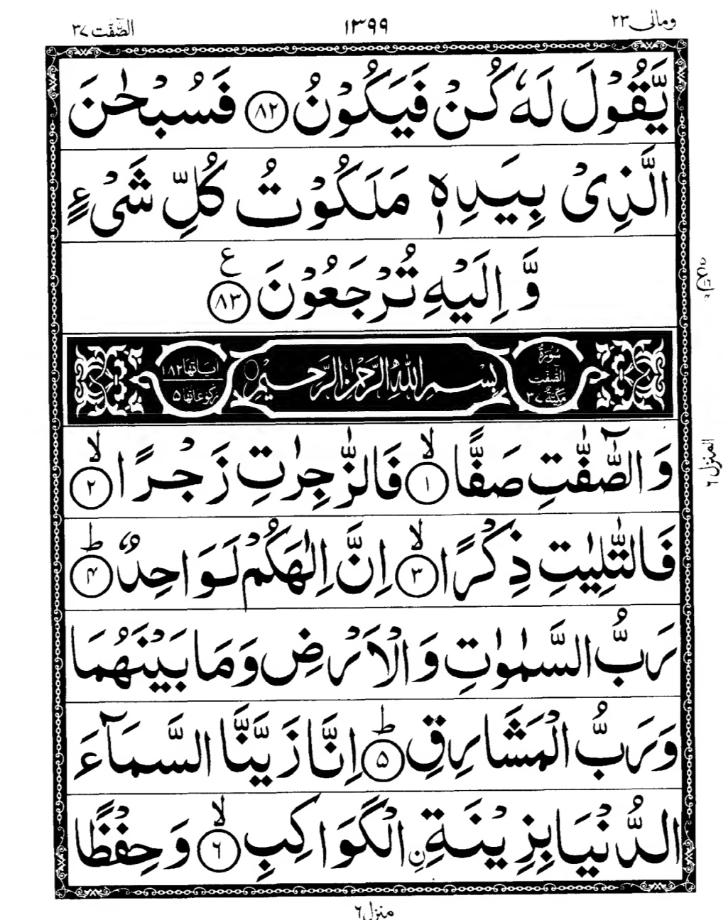 ومالی ٢٣
١٣٩٩
الصّٰفّٰت ٣٧
يَّقُوْلَ لَهٗ كُنْ فَيَكُوْنُ ﴿٨٢﴾ فَسُبْحٰنَ
الَّذِيْ بِيَدِهٖ مَلَكُوْتُ كُلِّ شَيْءٍ
وَّ اِلَيْهِ تُرْجَعُوْنَ ﴿٨٣﴾ ع
سُوْرَةُ الصّٰفّٰت مَكِّيَّة ٣٧
بِسْمِ اللّٰهِ الرَّحْمٰنِ الرَّحِيْمِ
اٰیاتها ١٨٢ ركوعاتها ٥
وَ الصّٰٓفّٰتِ صَفًّا ﴿١﴾ۙ فَالزّٰجِرٰتِ زَجْرًا ﴿٢﴾ۙ
فَالتّٰلِيٰتِ ذِكْرًا ﴿٣﴾ۙ اِنَّ اِلٰهَكُمْ لَوَاحِدٌ ﴿۴﴾ؕ
رَبُّ السَّمٰوٰتِ وَ الْاَرْضِ وَمَا بَيْنَهُمَا
وَرَبُّ الْمَشَارِقِ ﴿۵﴾ؕ اِنَّا زَيَّنَّا السَّمَآءَ
الدُّنْيَا بِزِيْنَةِ ِ۟الْكَوَاكِبِ ﴿٦﴾ۙ وَ حِفْظًا
المنزل ٦
منزل ٦